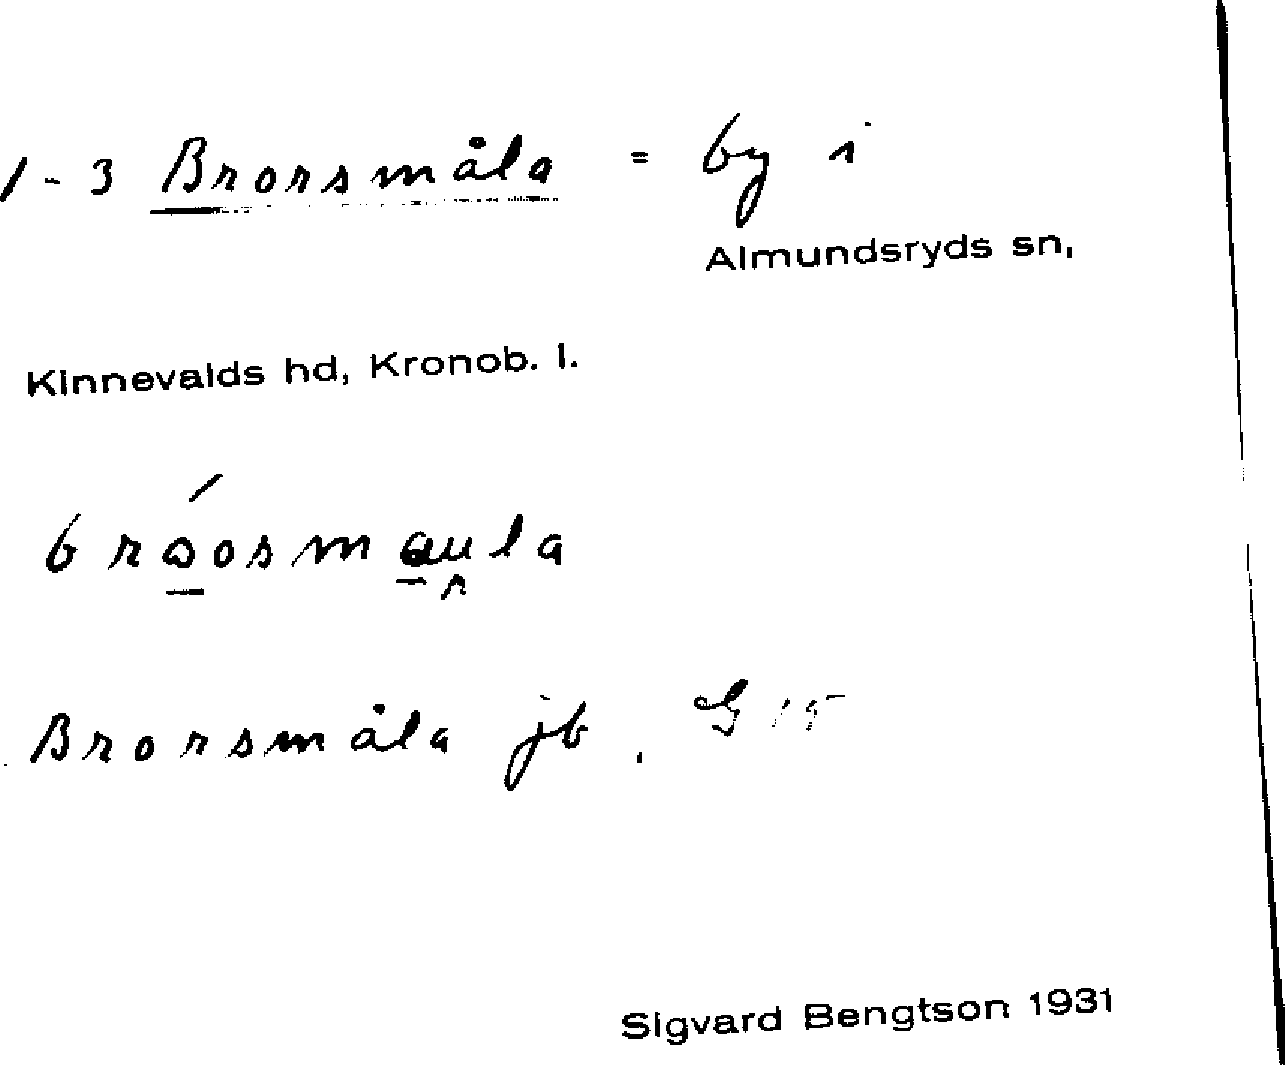 1-3 Brorsmåla = by i
Almundsryds sn,
Kinnevalds hd, Kronob. l.
bróosmaula
Brorsmåla jb. G 15
Sigvard Bengtson 1931